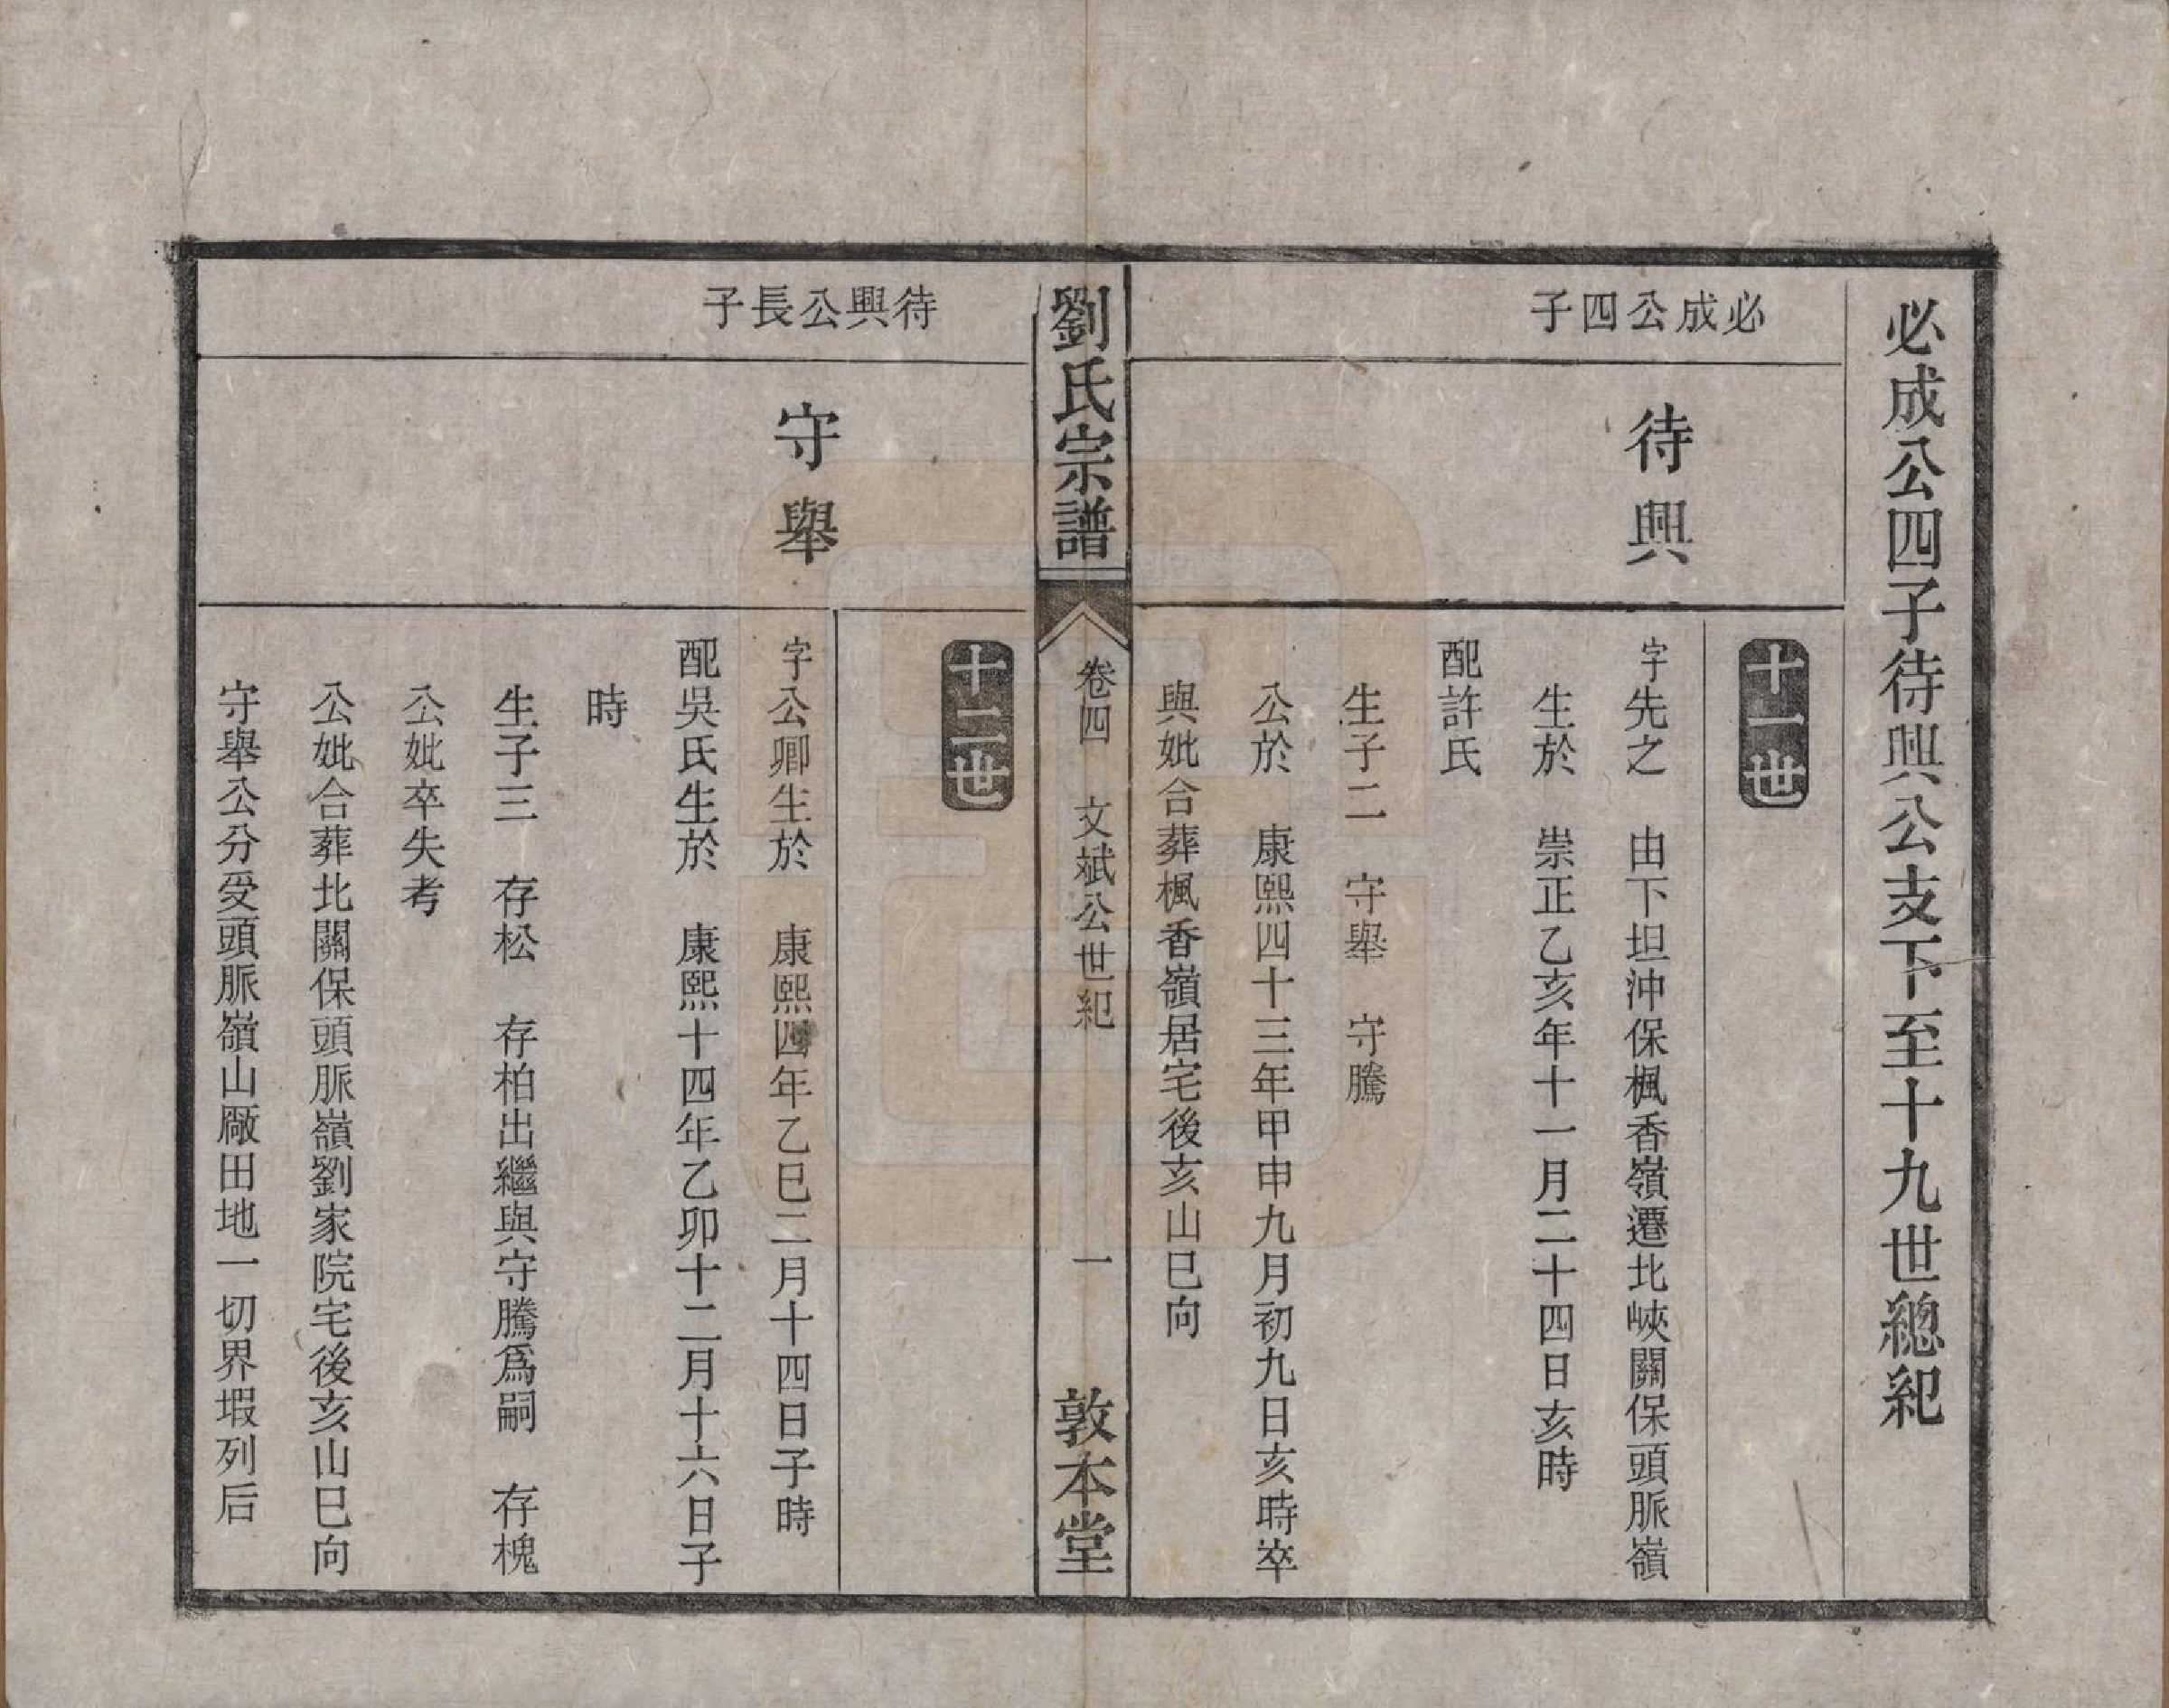 必成公四子待興公支下至十九世總紀
十一世
必成公四子
待興
字先之　由下坦沖保楓香嶺遷北峽關保頭脈嶺
生於　崇正乙亥年十一月二十四日亥時
配許氏
生子二　守舉　守騰
公於　康熙四十三年甲申九月初九日亥時卒
與妣合葬楓香嶺居宅後亥山巳向
劉氏宗譜
卷四　文斌公世紀　一
敦本堂
十二世
待興公長子
守舉
字公卿生於　康熙四年乙巳二月十四日子時
配吳氏生於　康熙十四年乙卯十二月十六日子
時
生子三　存松　存柏出繼與守騰爲嗣　存槐
公妣卒失考
公妣合葬北關保頭脈嶺劉家院宅後亥山巳向
守舉公分受頭脈嶺山厰田地一切界塅列后